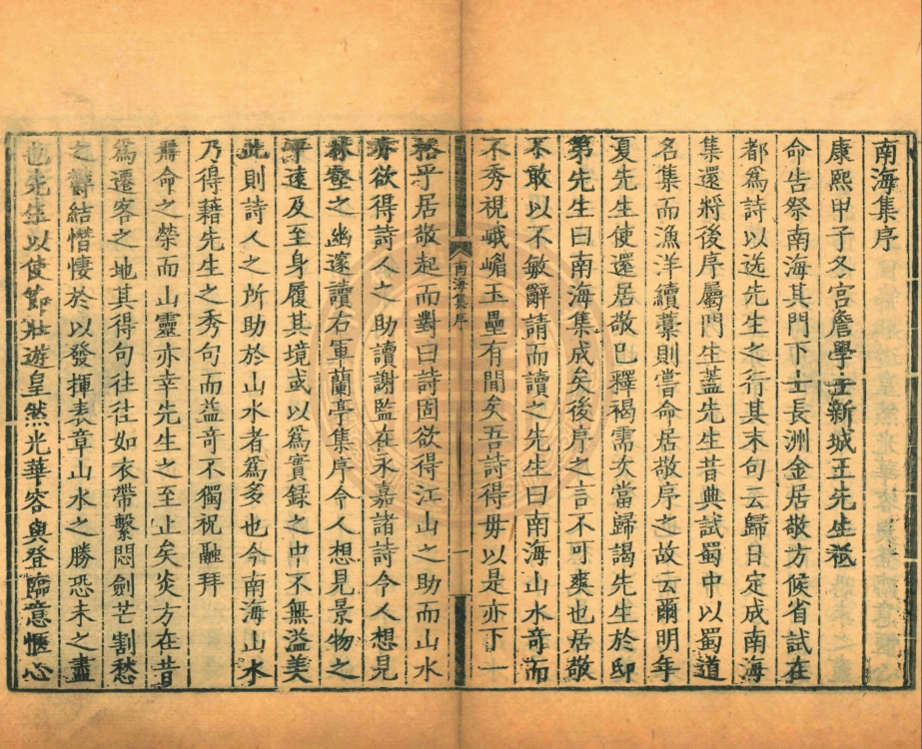 南海集序
康熙甲子冬宮詹學士新城王先生祗
命告祭南海其門下士長洲金居敬方候省試在
都為詩以送先生之行其末句云歸日定成南海
集還將後序屬門生蓋先生昔典試蜀中以蜀道
名集而漁洋續藁則嘗命居敬序之故云爾明年
夏先生使還居敬已釋褐需次當歸謁先生於邸
第先生曰南海集成矣後序之言不可爽也居敬
不敢以不敏辭請而讀之先生曰南海山水奇而
不秀視峨嵋玉壘有間矣吾詩得毋以是亦下一
南海集序
一
格乎居敬起而對曰詩固欲得江山之助而山水
亦欲得詩人之助讀謝監在永嘉諸詩令人想見
林壑之幽邃讀右軍蘭亭集序令人想見景物之
平遠及至身履其境或以為實錄之中不無溢美
此則詩人之所助於山水者為多也今南海山水
乃得藉先生之秀句而益奇不獨祝融拜
冊命之榮而山靈亦幸先生之至止矣炎方在昔
為遷客之地其得句往往如衣帶繫悶劍芒割愁
之鬱結憯悽於以發揮表章山水之勝恐未之盡
也先生以使節壯遊皇然光華容與登臨意愜心